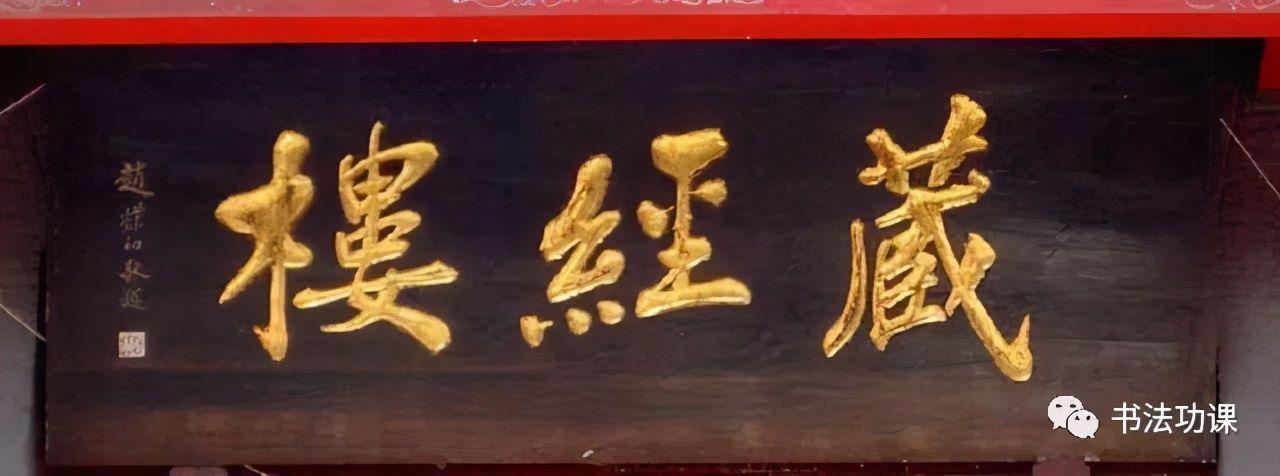 藏經樓
趙樸初敬題
书法功课